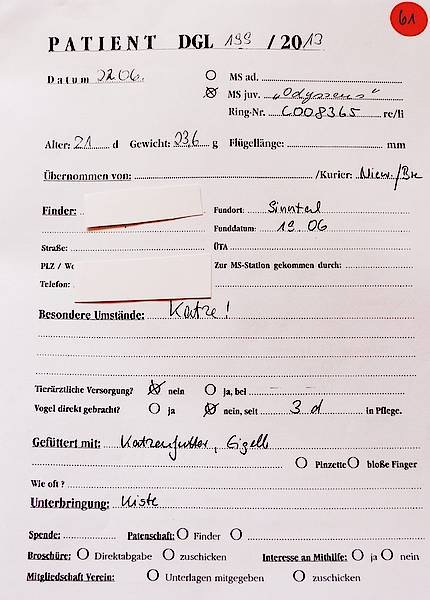 61
PATIENT DGL 199 / 2013
Datum 22.06. MS ad.
MS juv. "Odysseus"
Ring-Nr. C008365 re/li
Alter: 21 d Gewicht: 23,6 g Flügellänge: mm
Übernommen von: /Kurier:
Finder: Fundort: Sinntal
Funddatum: 19.06
Straße: ÜTA
PLZ / Wo Zur MS-Station gekommen durch:
Telefon:
Besondere Umstände: Katze!
Tierärztliche Versorgung? nein ja, bei
Vogel direkt gebracht? ja nein, seit 3 d in Pflege.
Gefüttert mit: Katzenfutter, Eigelb
Pinzette bloße Finger
Wie oft ?
Unterbringung: Kiste
Spende: Patenschaft: Finder
Broschüre: Direktabgabe zuschicken Interesse an Mithilfe: ja nein
Mitgliedschaft Verein: Unterlagen mitgegeben zuschicken